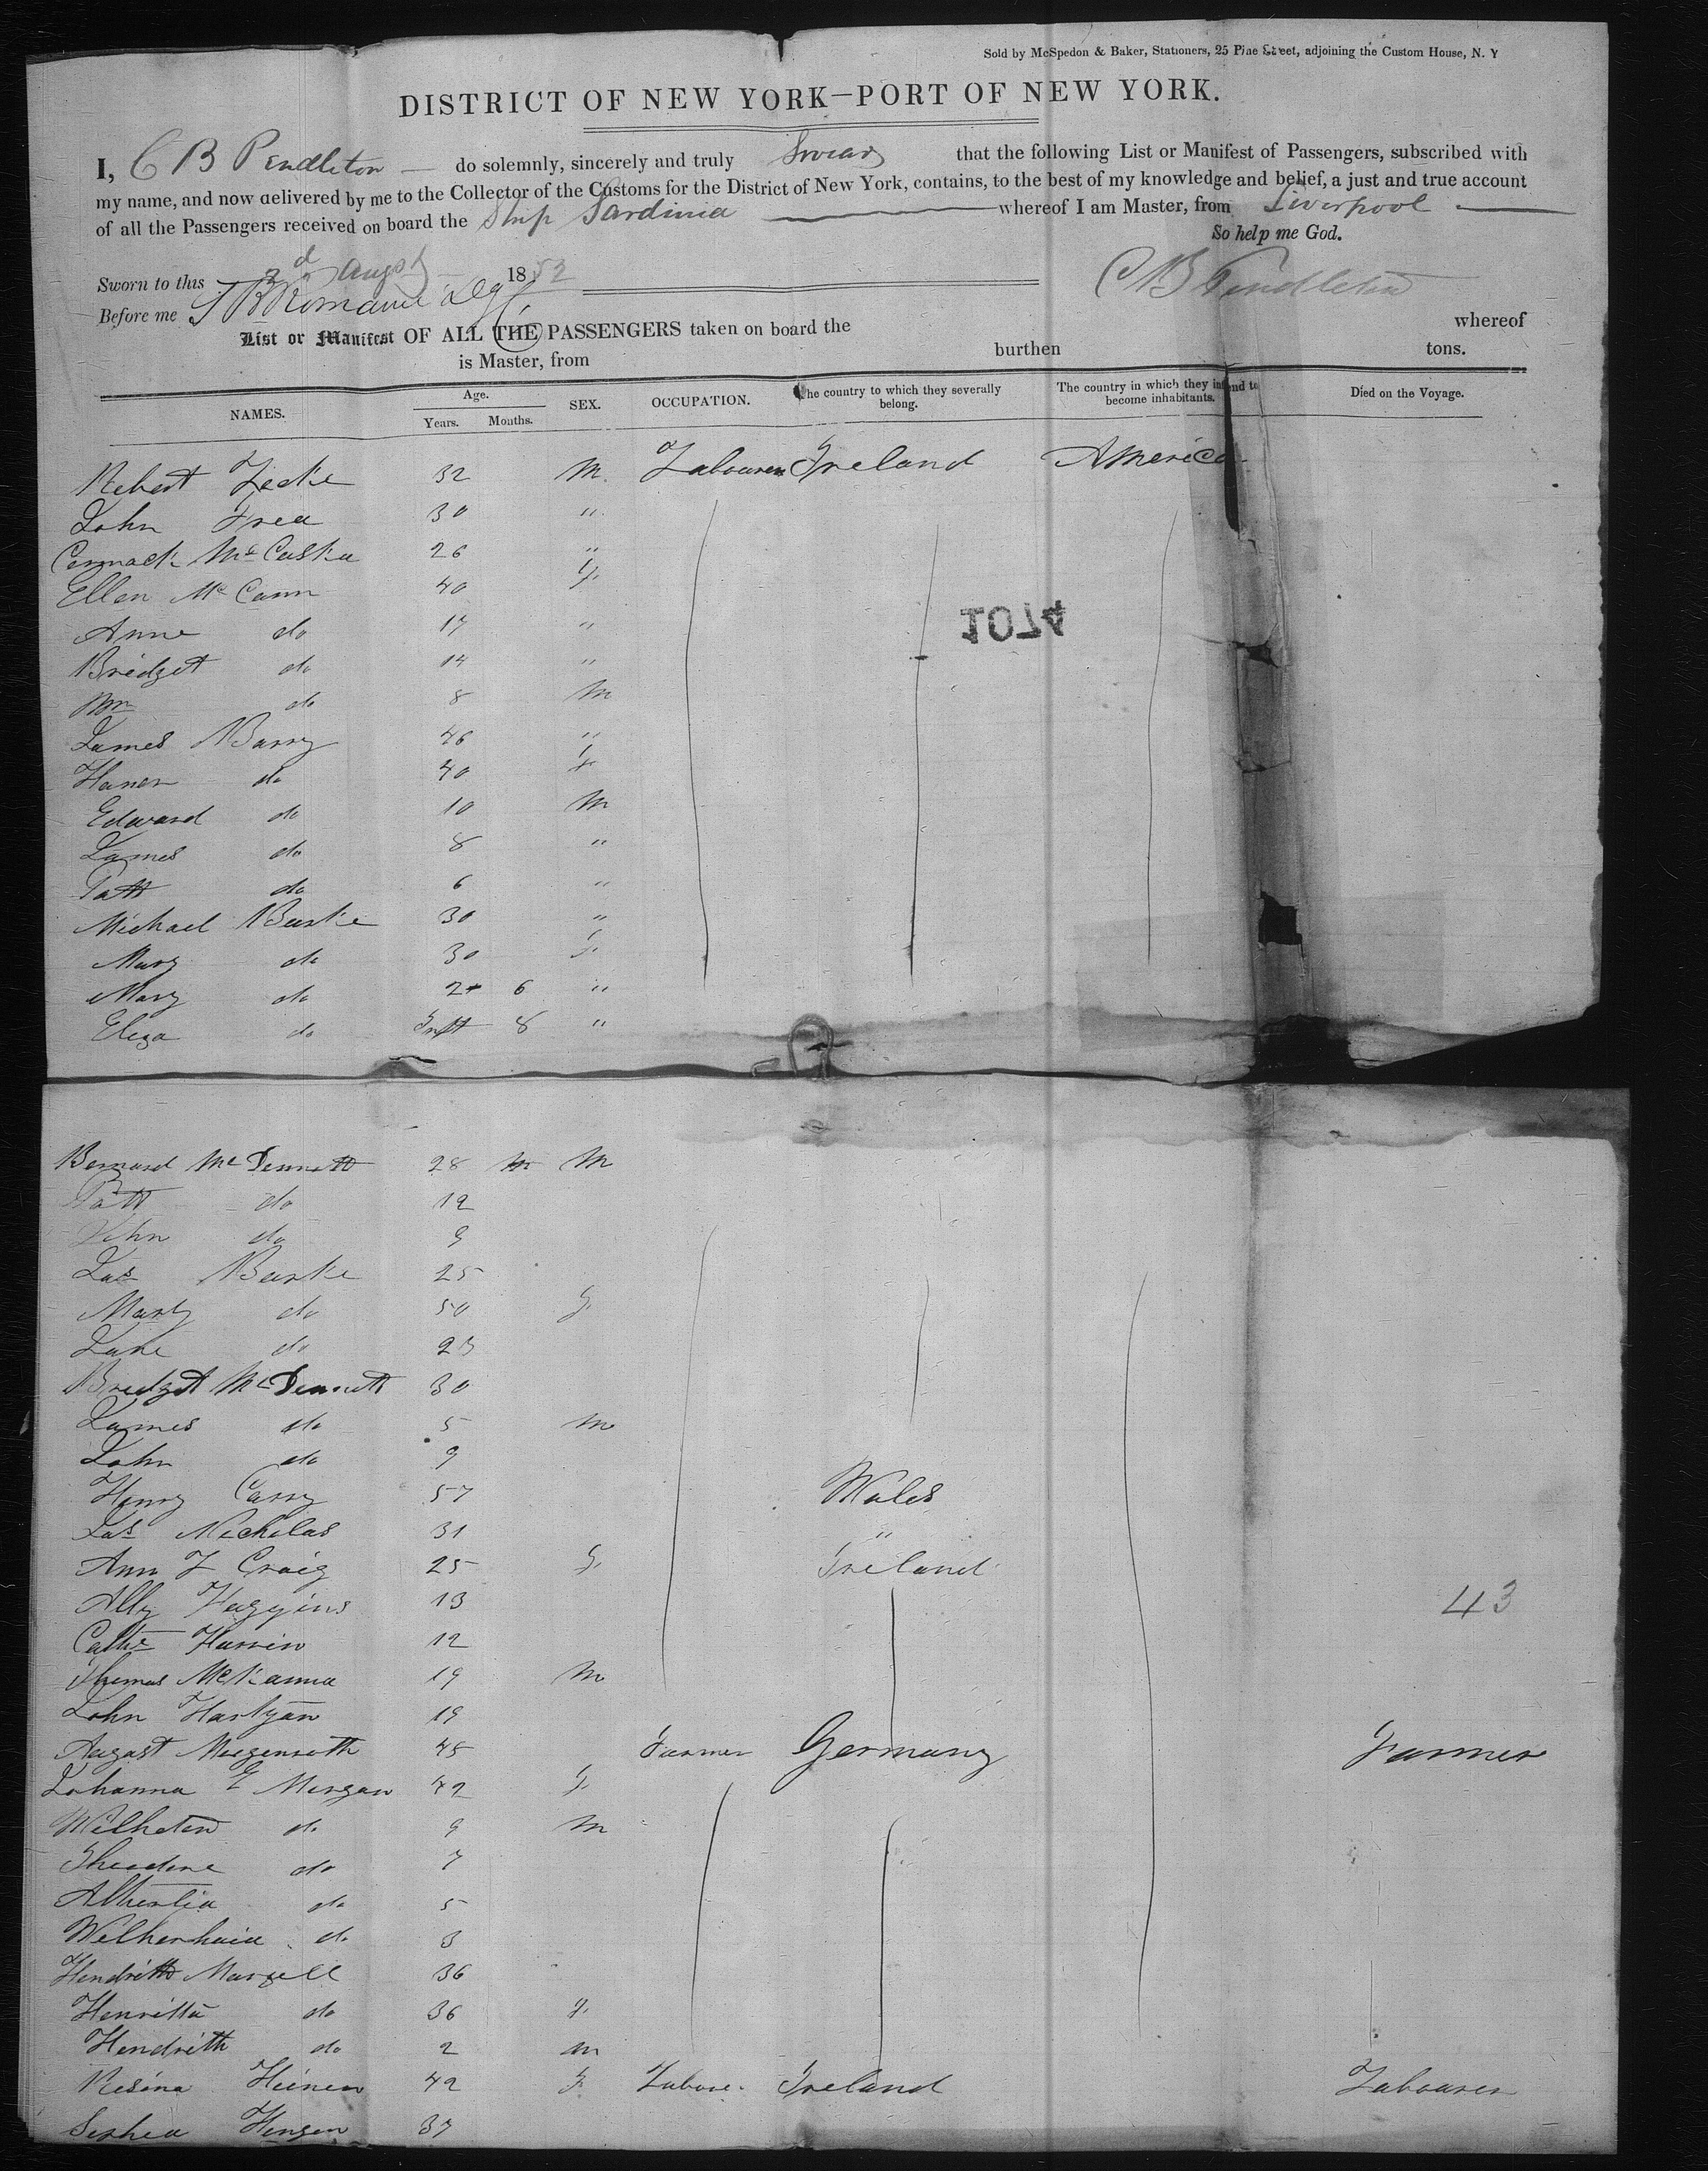 Sold by McSpedon & Baker, Stationers, 25 Pine Street, adjoining the Custom House, N. Y
DISTRICT OF NEW YORK—PORT OF NEW YORK.
I, C B Pendleton do solemnly, sincerely and truly Swear that the following List or Manifest of Passengers, subscribed with
my name, and now delivered by me to the Collector of the Customs for the District of New York, contains, to the best of my knowledge and belief, a just and true account
of all the Passengers received on board the Ship Sardinia whereof I am Master, from Liverpool
So help me God.
Sworn to this 2d Augst 1853
C B Pendleton
Before me
List or Manifest OF ALL THE PASSENGERS taken on board the whereof
is Master, from burthen tons.
NAMES. Age. Years. Months. SEX. OCCUPATION. The country to which they severally belong. The country in which they intend to become inhabitants. Died on the Voyage.
Robert 32 M. Labourer Ireland America
John 30 "
26 "
Ellen Mc Cann 40 F
Anne do 17 "
Bridget do 14 "
Wm do 8 M
James Barry 46 "
do 40 F
Edward do 10 M
James do 8 "
Patt do 6 "
Michael Burke 30 "
Mary do 30 F
Mary do 2 6 "
Eliza do Inft 8 "
1074
Bernard Mc Dermott 28 M
Patt do 12
John do 9
Jas Burke 25
Mary do 50 F
Jane do 23
Bridget Mc Dermott 30
James do 5 m
John do 9
Henry 57 Wales
Jas Nicholas 31 "
Ann J Craig 25 F Ireland
Ally Huggins 13
43
Cathe 12
Thomas McKanna 19 m
John 19
August Morgenroth 45 Farmer Germany Farmer
Johanna E Morgan 42 F
do 9 m
Theodore do 7
do 5
do 3
36
Henritta do 36 F
do 2 m
42 F Ireland Labourer
37